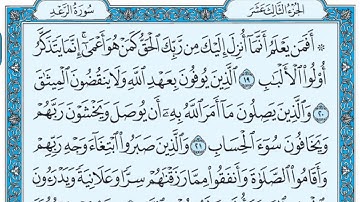 سُورَةُ الرَّعْدِ
الجُزْءُ الثَّالِثَ عَشَرَ
۞ أَفَمَن يَعْلَمُ أَنَّمَآ أُنزِلَ إِلَيْكَ مِن رَّبِّكَ ٱلْحَقُّ كَمَنْ هُوَ أَعْمَىٰٓ ۚ إِنَّمَا يَتَذَكَّرُ
أُو۟لُوا۟ ٱلْأَلْبَٰبِ ١٩ ٱلَّذِينَ يُوفُونَ بِعَهْدِ ٱللَّهِ وَلَا يَنقُضُونَ ٱلْمِيثَٰقَ
٢٠ وَٱلَّذِينَ يَصِلُونَ مَآ أَمَرَ ٱللَّهُ بِهِۦٓ أَن يُوصَلَ وَيَخْشَوْنَ رَبَّهُمْ
وَيَخَافُونَ سُوٓءَ ٱلْحِسَابِ ٢١ وَٱلَّذِينَ صَبَرُوا۟ ٱبْتِغَآءَ وَجْهِ رَبِّهِمْ
وَأَقَامُوا۟ ٱلصَّلَوٰةَ وَأَنفَقُوا۟ مِمَّا رَزَقْنَٰهُمْ سِرًّا وَعَلَانِيَةً وَيَدْرَءُونَ